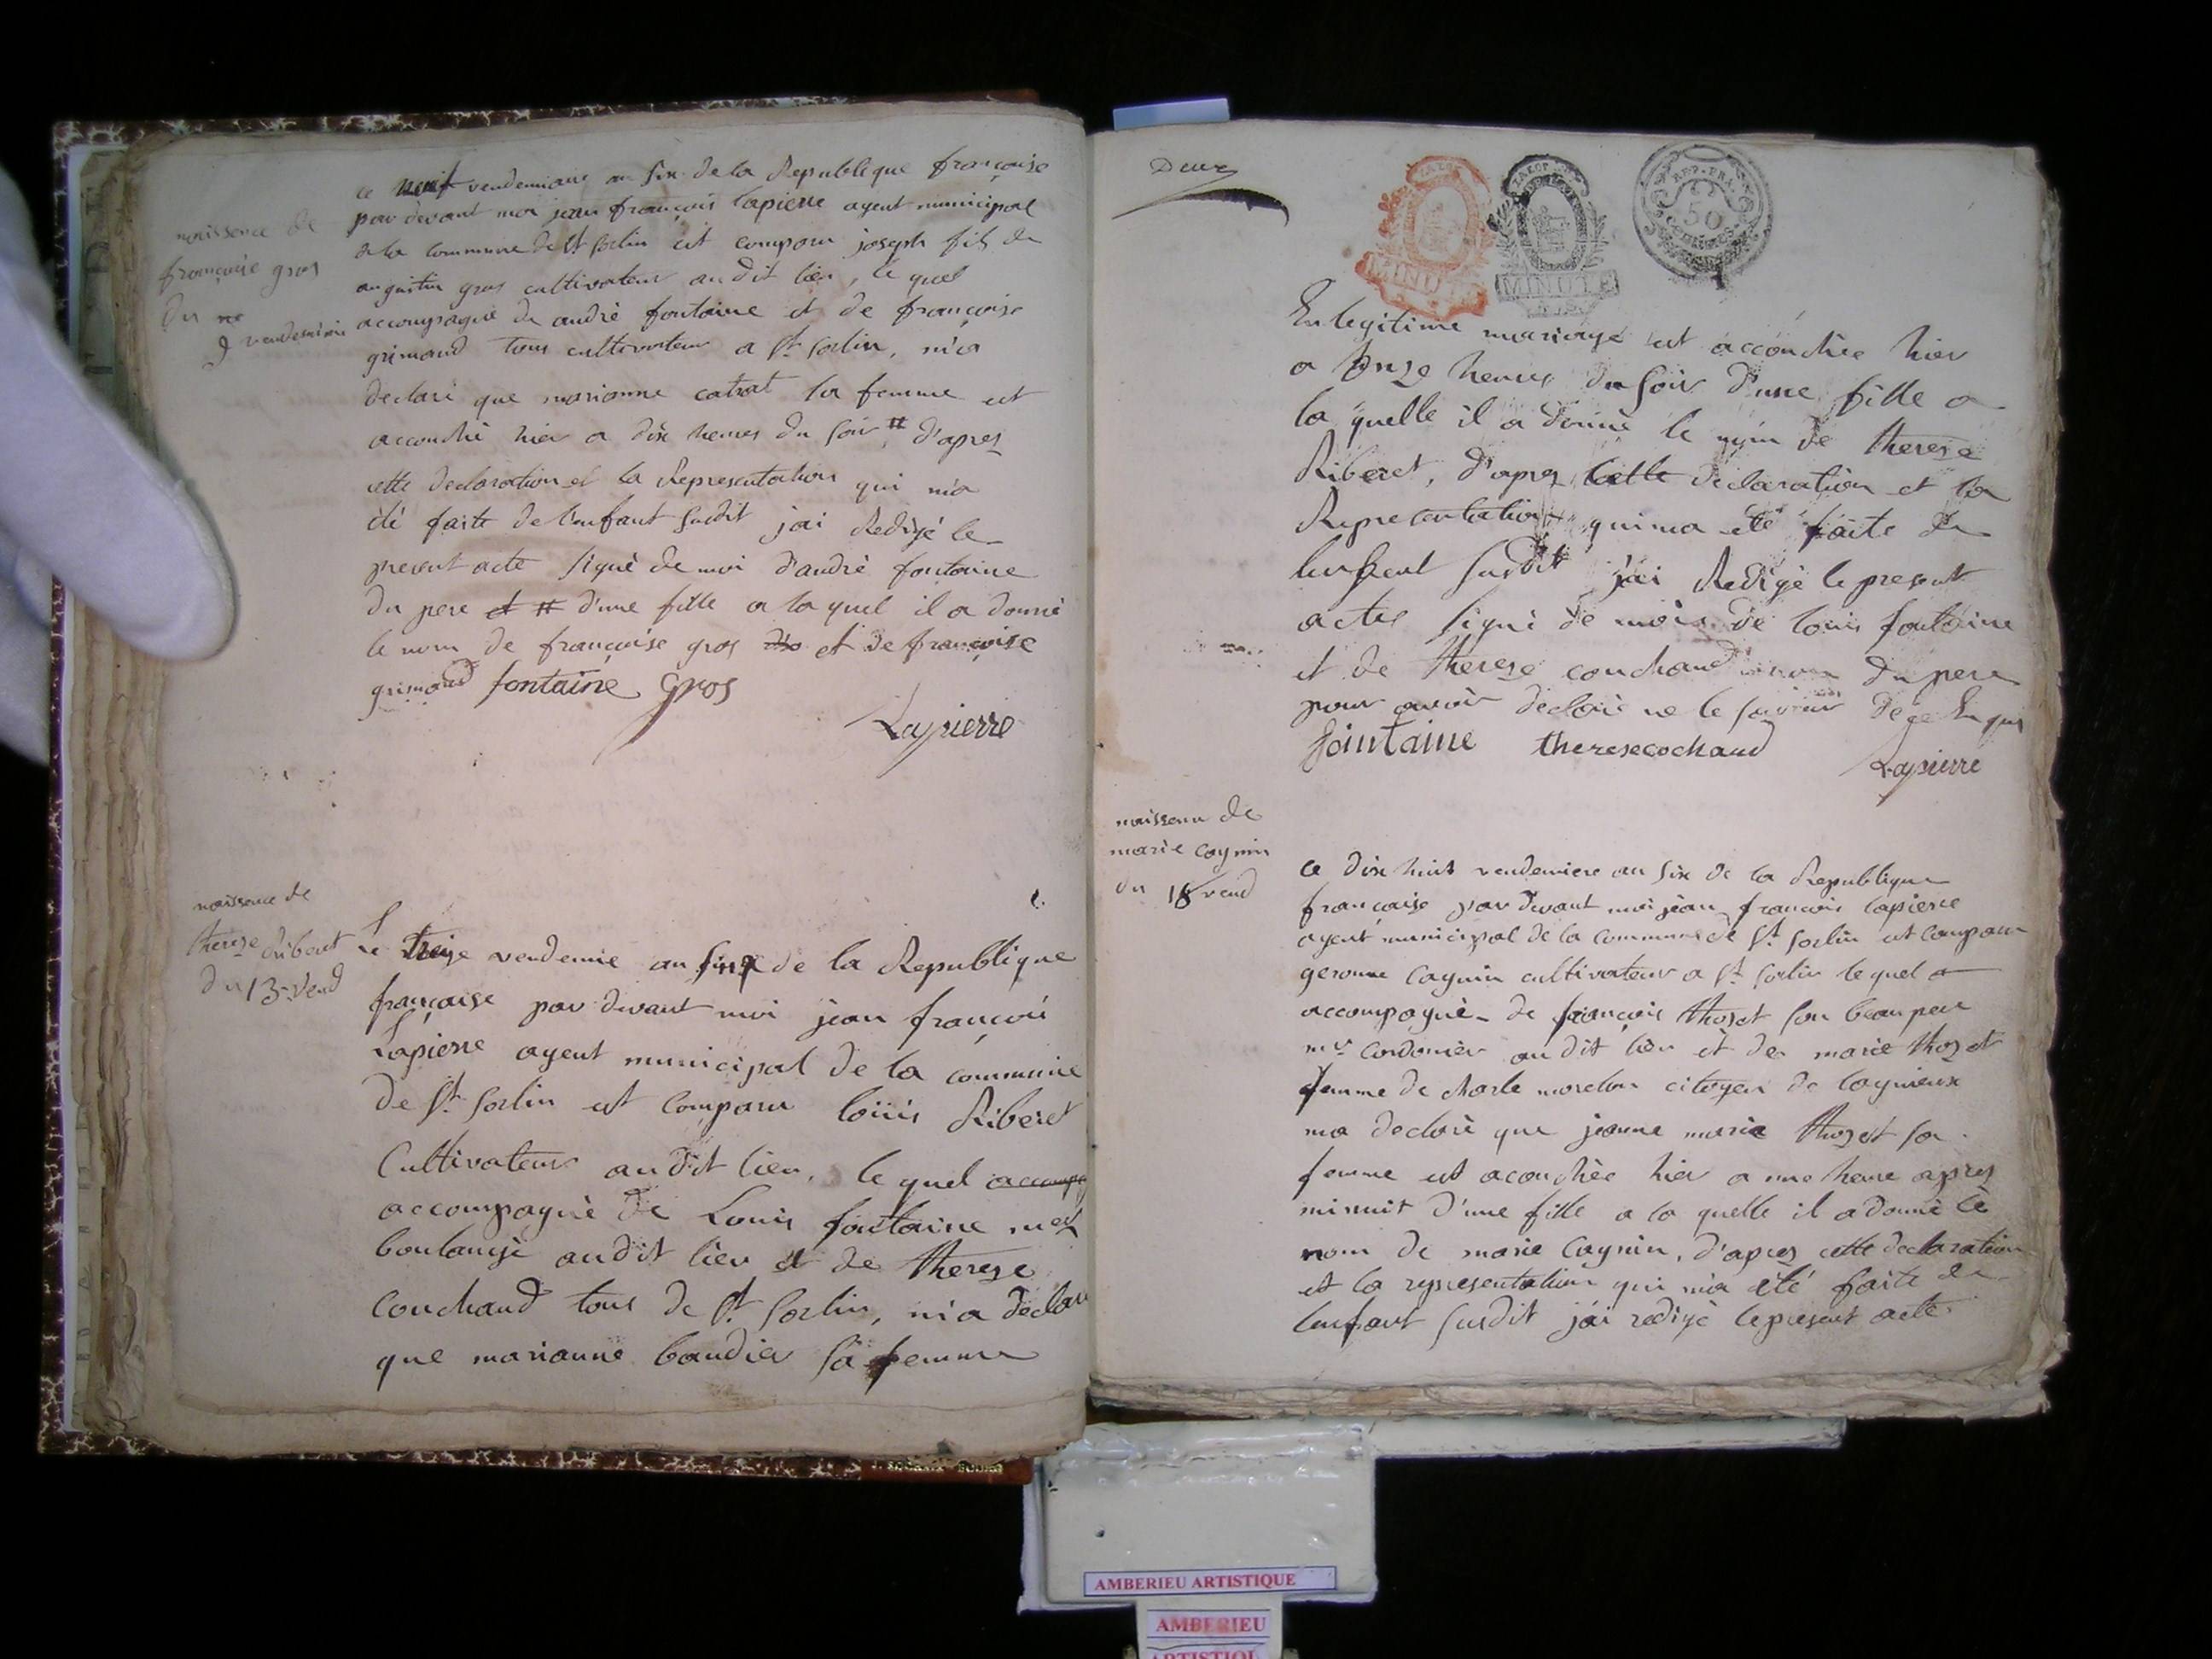 naissence de
françoise gros
du
9 vendemiair
ce neuf vendemiaire an six de la Republeque françoise
par devant moi jean françois lapierre agent municipal
de la commune de St Sorlin est comparu joseph fils de
augustin gros cultivateur au dit lieu, le quel
accompagné de andré fontaine et de françoise
grimaud tous cultivateur a St Sorlin, m'a
declaré que marianne catrat sa femme est
accouchè hier a dix heures du soir # d'apres
cette declaration et la Representation qui m'a
été faite de l'enfant susdit jai Redigé le
present acte signé de moi d'andrè fontaine
du pere et # d'une fille a la quel il a donné
le nom de françoise gros et de françoise
grimaud fontaine gros
Lapierre
naissence de
thereze Riberet
du 13 Vend
Le treize vendemie an six de la Republique
française par devant moi jean françois
Lapierre agent municipal de la commune
de St Sorlin est comparu loüis Riberet
Cultivateur au dit lieu, le quel accompa
accompagnè de Louis fontaine me
boulangé audit lieu et de thereze
couchaud tous de St Sorlin, m'a déclaré
que marianne baudier sa femme
Deux
MINUTE
MINUTE
REP. FRA.
50
En legitime mariage est accouchée hier
a onze heures du soir d'une fille a
la quelle il a donné le nom de thereze
Riberet, d'apres cette declaration et la
Representation qui ma été faite de
lenfant susdit j'ai Redigé le present
acte signé de moi de louis fontaine
et de thereze couchaud non du pere
pour avoir declaré ne le savoir de ce Enquis
fointaine theresecochaud
Lapierre
naissence de
marie cagnin
du 18 vend
ce dix huit vendemiere an six de la Republique
française par devant moi jean françois lapierre
agent municipal de la commune de St Sorlin est comparu
geromme cagnin cultivateur a St Sorlin le quel a
accompagné de françois thozet son beau pere
mr cordonier au dit lieu et de marie thozet
femme de charle morelon citoyen de lagnieux
ma declaré que jeanne marie thozet sa
femme est acouchée hier a une heure apres
minuit d'une fille a la quelle il a donné le
nom de marie cagnin, d'apres cette declaration
et la representation qui m'a été faite de
lenfant susdit j'ai redigé le present acte
AMBERIEU ARTISTIQUE
AMBERIEU
ARTISTIQUE